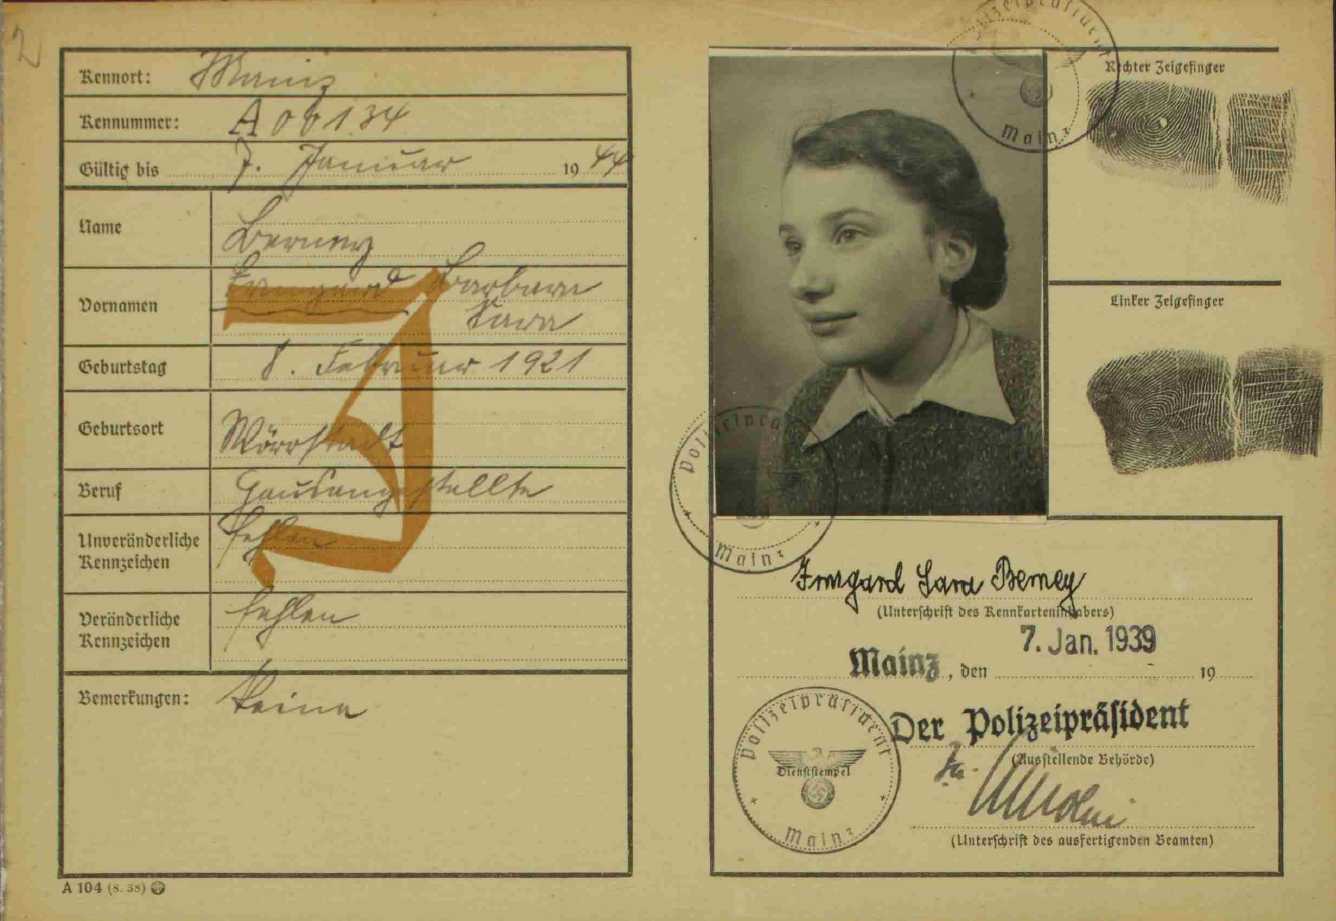 2
Kennort: Mainz
Kennummer: A 00134
Gültig bis 7. Januar 19 44
Name Berney
Vornamen Irmgard Barbara
Sara
Geburtstag 8. Februar 1921
Geburtsort Wörrstadt
Beruf Hausangestellte
Unveränderliche
Kennzeichen fehlen
Veränderliche
Kennzeichen fehlen
Bemerkungen: Keine
J
A 104 (8. 38)
Polizeipräsident
Mainz
Rechter Zeigefinger
Linker Zeigefinger
Polizeipräsident
Mainz
Irmgard Sara Berney
(Unterschrift des Kennkarteninhabers)
Mainz, den 7. Jan. 1939 19
Der Polizeipräsident
(Ausstellende Behörde)
Polizeipräsident
Dienststempel
Mainz
(Unterschrift des ausfertigenden Beamten)